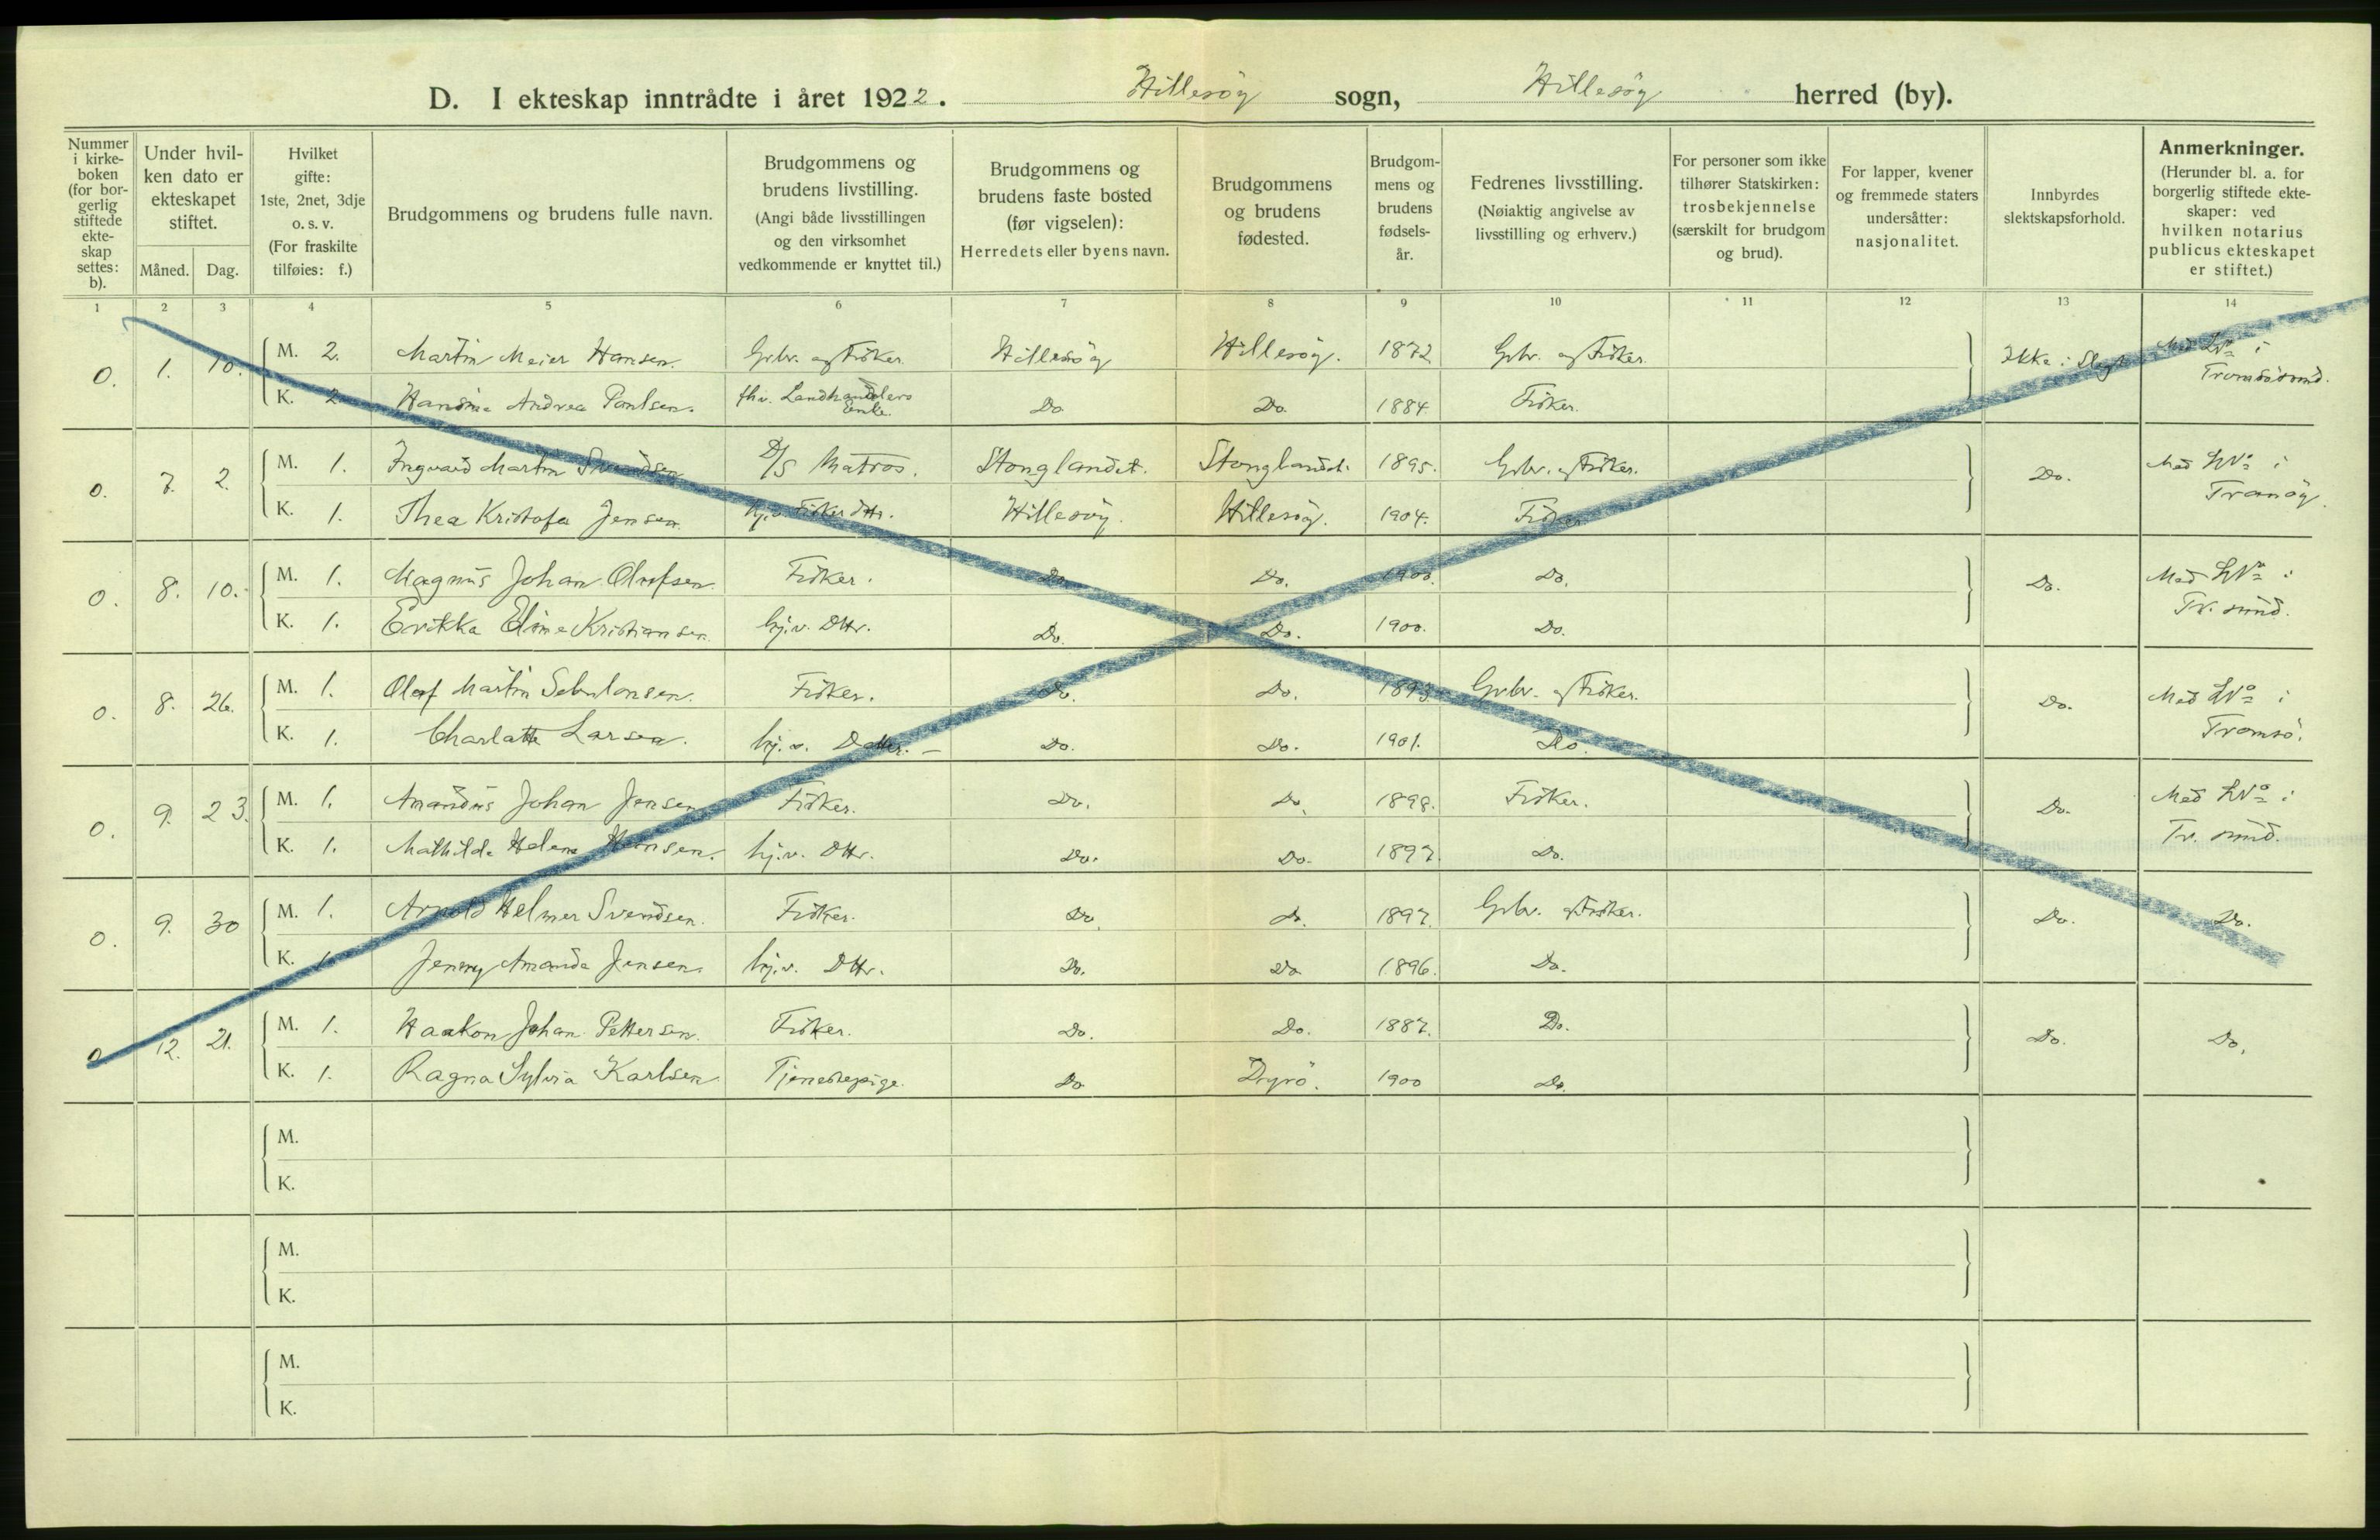 D. I ekteskap inntrådte i året 1922. Hillesöy sogn, Hillesöy herred (by).
Nummer i kirke-boken (for bor-gerlig stiftede ekte-skap settes: b).
Under hvil-ken dato er ekteskapet stiftet.
Måned. Dag.
Hvilket gifte: 1ste, 2net, 3dje o. s. v. (For fraskilte tilføies: f.)
Brudgommens og brudens fulle navn.
Brudgommens og brudens livstilling. (Angi både livsstillingen og den virksomhet vedkommende er knyttet til.)
Brudgommens og brudens faste bosted (før vigselen): Herredets eller byens navn.
Brudgommens og brudens fødested.
Brudgom-mens og brudens fødsels-år.
Fedrenes livsstilling. (Nøiaktig angivelse av livsstilling og erhverv.)
For personer som ikke tilhører Statskirken: trosbekjennelse (særskilt for brudgom og brud).
For lapper, kvener og fremmede staters undersåtter: nasjonalitet.
Innbyrdes slektskapsforhold.
Anmerkninger. (Herunder bl. a. for borgerlig stiftede ekte-skaper: ved hvilken notarius publicus ekteskapet er stiftet.)
1 2 3 4 5 6 7 8 9 10 11 12 13 14
0. 1. 10. M. 2. Martin Meier Hansen. Grbr. og Fisker. Hillesöy Hillesöy. 1872 Grbr. og Fisker. Ikke i Slegt Med LNo i Tromsösund.
K. 2 Hansine Andrea Paulsen. fhv. Landhandlers Enke. Do Do. 1884. Fisker.
0. 7. 2. M. 1. Ingvard Martin Svendsen D/S Matros. Stonglandet. Stonglandet. 1895. Grbr. og Fisker. Do. Med LNo i Tranöy.
K. 1. Thea Kristofa Jensen. hj.v. Fisker Dttr. Hillesöy. Hillesöy. 1904. Fisker
0. 8. 10. M. 1. Magnus Johan Olufsen. Fisker. Do. Do. 1900. Do. Do. Med LNo i Tr. sund.
K. 1. Erikka Eline Kristiansen. hj.v. Dttr. Do. Do. 1900. Do.
0. 8. 26. M. 1. Olaf Martin Sebulonsen. Fisker. Do. Do. 1893. Grbr. og Fisker. Do. Med LNo i Tromsö.
K. 1. Charlotte Larsen. hj. v. Datter. – Do. Do. 1901. Do.
0. 9. 23. M. 1. Amandus Johan Jensen Fisker. Do. Do. 1898. Fisker. Do. Med LNo i Tr. sund.
K. 1. Mathilde Helene Hansen. hj.v. Dttr. Do. Do. 1897. Do.
0. 9. 30 M. 1. Arnold Helmer Svendsen. Fisker. Do. Do. 1897. Grbr. og Fisker. Do. Do.
K. 1. Jenny Amanda Jensen. hj.v. Dttr. Do. Do 1896. Do.
0 12. 21. M. 1. Haakon Johan Pettersen. Fisker. Do. Do. 1887. Do. Do. Do.
K. 1. Ragna Sylvia Karlsen. Tjenestepige. Do Dyrö. 1900 Do.
M.
K.
M.
K.
M.
K.